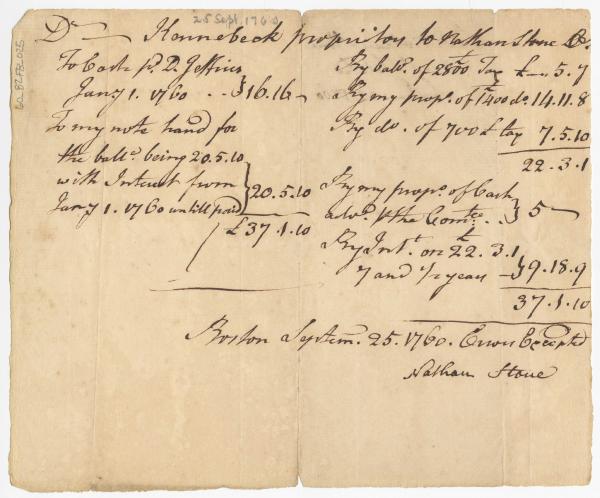 25 Sept. 1760
Dr — Kennebeck propritors to Nathan Stone Cr.
To Cash pd. D. Jeffries
Jany 1. 1760 .. 16.16 —
To my note hand for
the ballc. being 20.5.10
with Interest from
Jany 1. 1760 untill paid 20.5.10
£ 37.1.10
By balc. of 2800 Tax £ — 5.7
By my propn. of £1400 do. 14.11.8
By do. of 700 £ tax 7.5.10
22.3.1
By my propn. of Cash
advd. the Comtee .. 5 —
By Int. on £22.3.1
7 and 1/2 years — 9.18.9
37.1.10
Boston Septem. 25. 1760. Errors Excepted
Nathan Stone